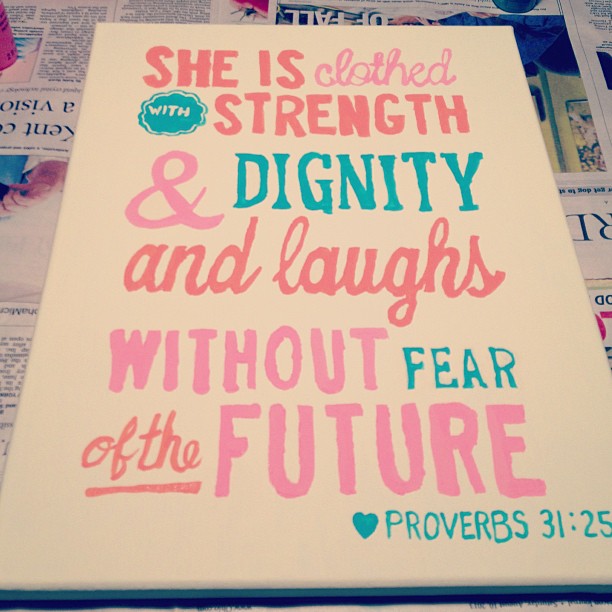 SHE IS clothed
WITH STRENGTH
& DIGNITY
and laughs
WITHOUT FEAR
of the FUTURE
♥ PROVERBS 31:25
OF FALL
a visio
Kent co